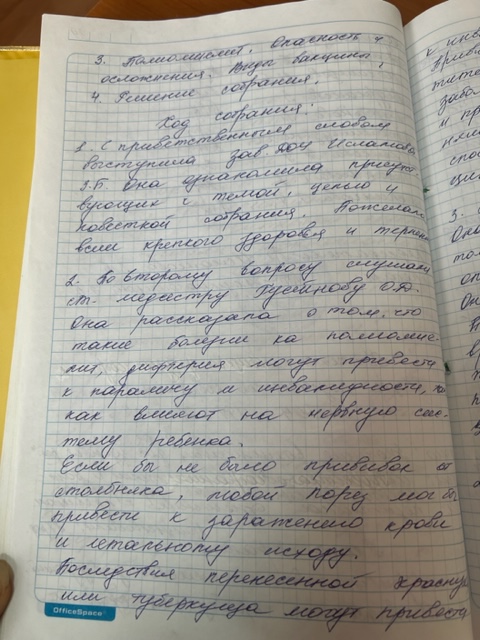 3. Полиомиелит. Опасность и
осложнения. Виды вакцины.
4. Решение собрания.
Ход собрания:
1. С приветственным словом
выступила зав. ДОУ Исламова
З.Б. Она ознакомила присутс
вующих с темой, целью и
повесткой собрания. Пожелала
всем крепкого здоровья и терпени
2. По второму вопросу слушали
ст. медсестру Гусейнову О.Д.
Она рассказала о том, что
такие болезни ка полиомие-
лит, дифтерия могут привести
к параличу и инвалидности,
как влияют на нервную сис-
тему ребенка.
Если бы не было прививок от
столбняка, любой порез мог бы
привести к заражению крови
и летальному исходу.
Последствия перенесенной краснух
или туберкулеза могут привести
OfficeSpace
к инв
заб
и пр
3.
Она